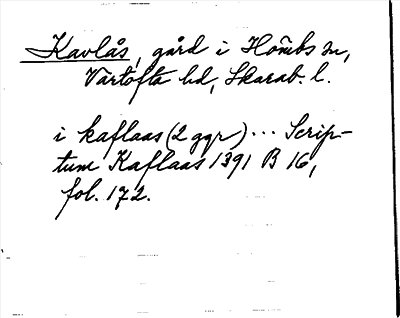 Kavlås, gård i Hömbs sn,
Vartofta hd, Skarab. l.
i kaflaas (2 ggr) ... Scrip-
tum Kaflaas 1391 B 16,
fol. 172.